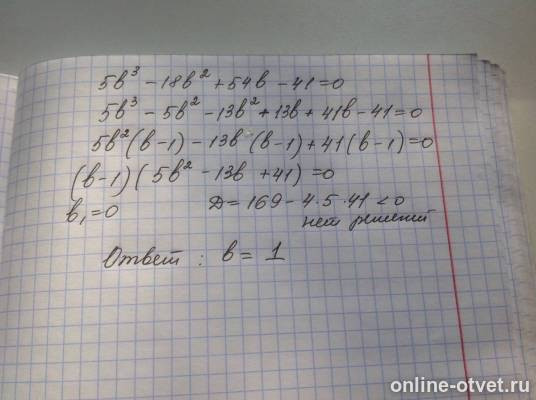 5b³ - 18b² + 54b - 41 = 0
5b³ - 5b² - 13b² + 13b + 41b - 41 = 0
5b²(b-1) - 13b(b-1) + 41(b-1) = 0
(b-1)(5b² - 13b + 41) = 0
b₁ = 0 D = 169 - 4·5·41 < 0
нет решений
Ответ : b = 1
online-otvet.ru